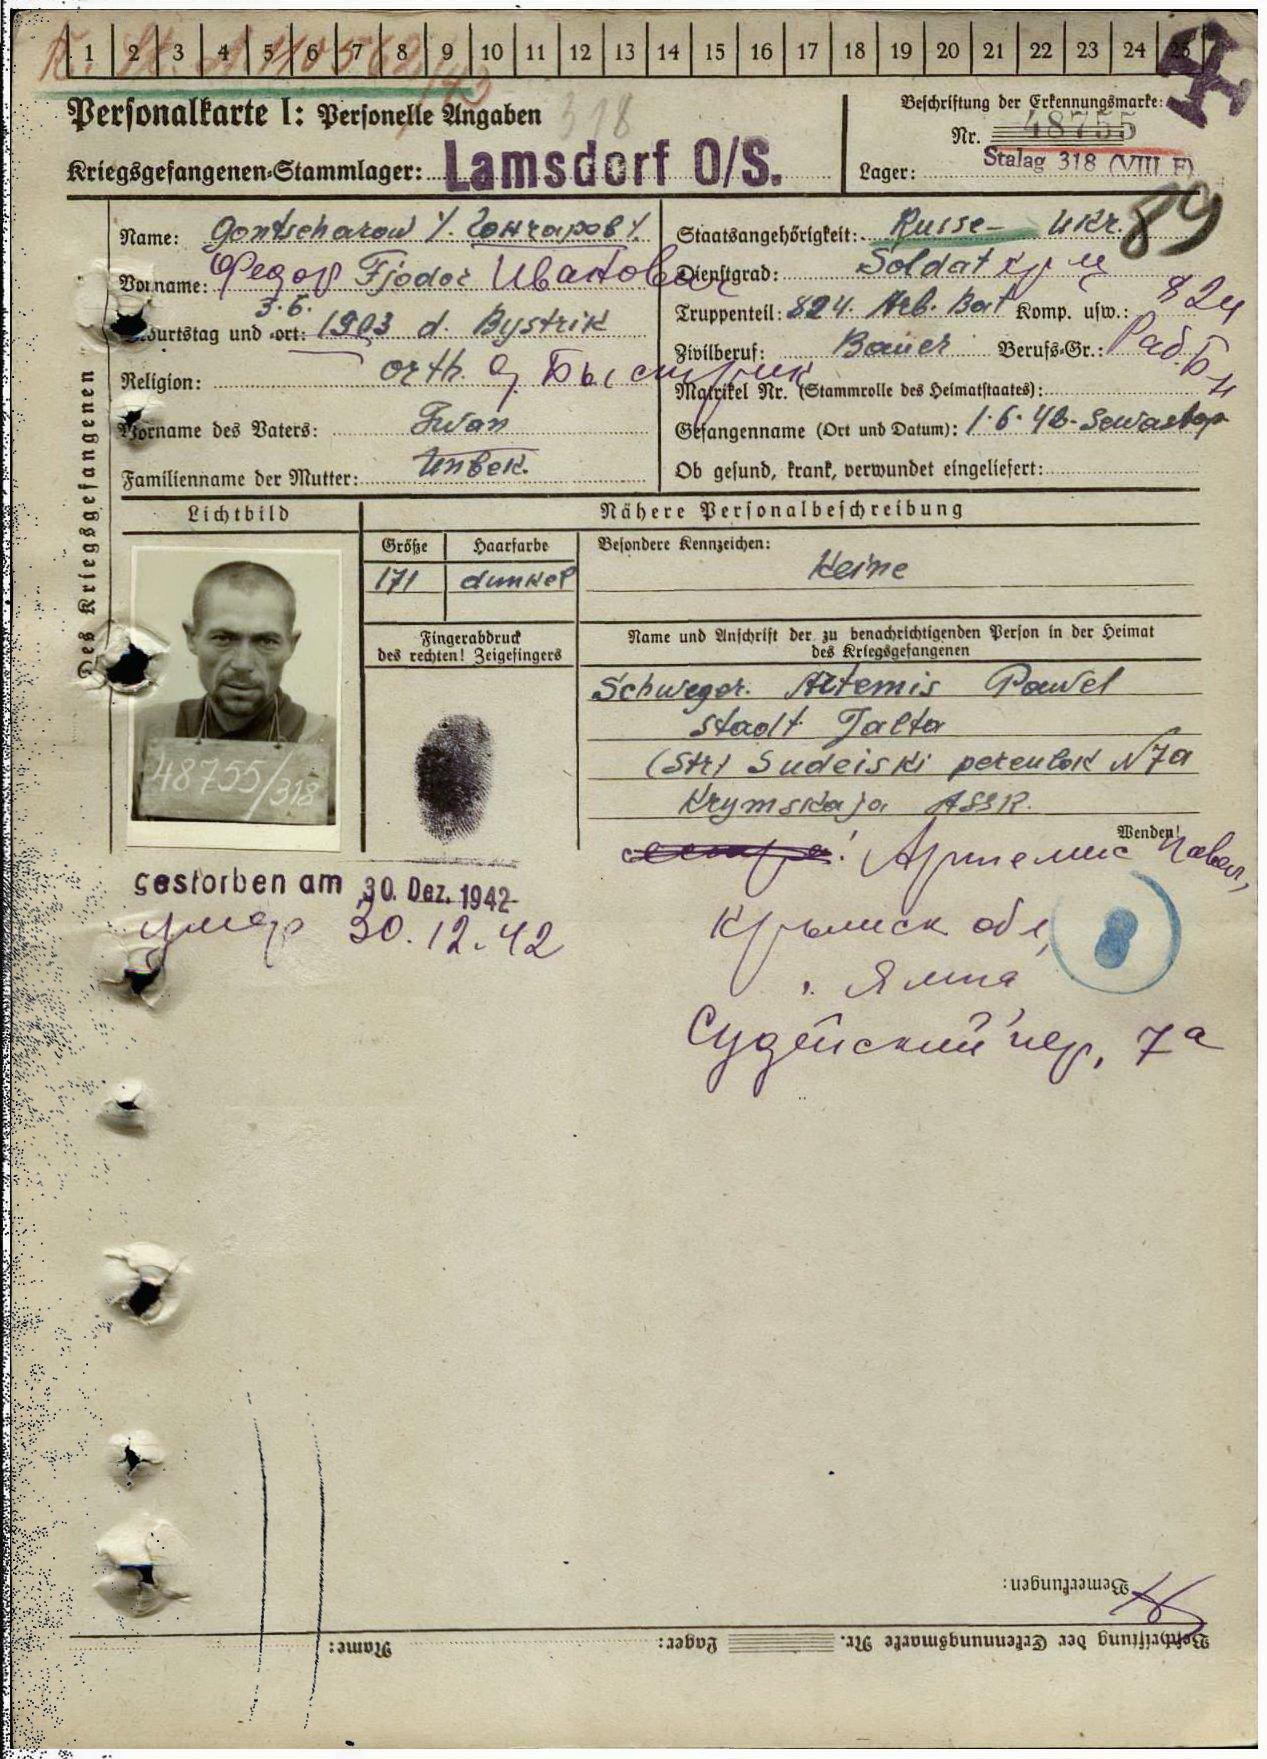 1 2 3 4 5 6 7 8 9 10 11 12 13 14 15 16 17 18 19 20 21 22 23 24 25
Personalkarte I: Personelle Angaben
318
Beschriftung der Erkennungsmarke:
Nr. 48755
Kriegsgefangenen-Stammlager: Lamsdorf O/S.
Lager: Stalag 318 (VIII F)
89
Des Kriegsgefangenen
Name: Gontscharow Y. Гончаров У.
Vorname: Федор Fjodor Иванович
3.6.
Geburtstag und -ort: 1903 d. Bystrik
Religion: orth. д. Быстрик
Vorname des Vaters: Iwan
Familienname der Mutter: Unbek.
Staatsangehörigkeit: Russe- Ukr.
Dienstgrad: Soldat
Truppenteil: 824. Arb. Bat Komp. usw.: 824
Zivilberuf: Bauer Berufs-Gr.: Раб. Б-н
Matrikel Nr. (Stammrolle des Heimatstaates):
Gefangenname (Ort und Datum): 1.6.42-Sewastop
Ob gesund, krank, verwundet eingeliefert:
Lichtbild
Nähere Personalbeschreibung
Größe Haarfarbe
171 dunkel
Besondere Kennzeichen:
Keine
Fingerabdruck
des rechten! Zeigefingers
Name und Anschrift der zu benachrichtigenden Person in der Heimat
des Kriegsgefangenen
Schweger. Artemis Pawel
Stadt Jalta
(Str) Sudeiski pereulok N7a
Krymskaja ASSR.
48755/318
Wenden!
Артемис Павел,
gestorben am 30. Dez. 1942
умер 30.12.42
Крымск обл,
8
Ялта
Судейский пер, 7а
Bemerkungen:
Beschriftung der Erkennungsmarke Nr. Lager: Name: